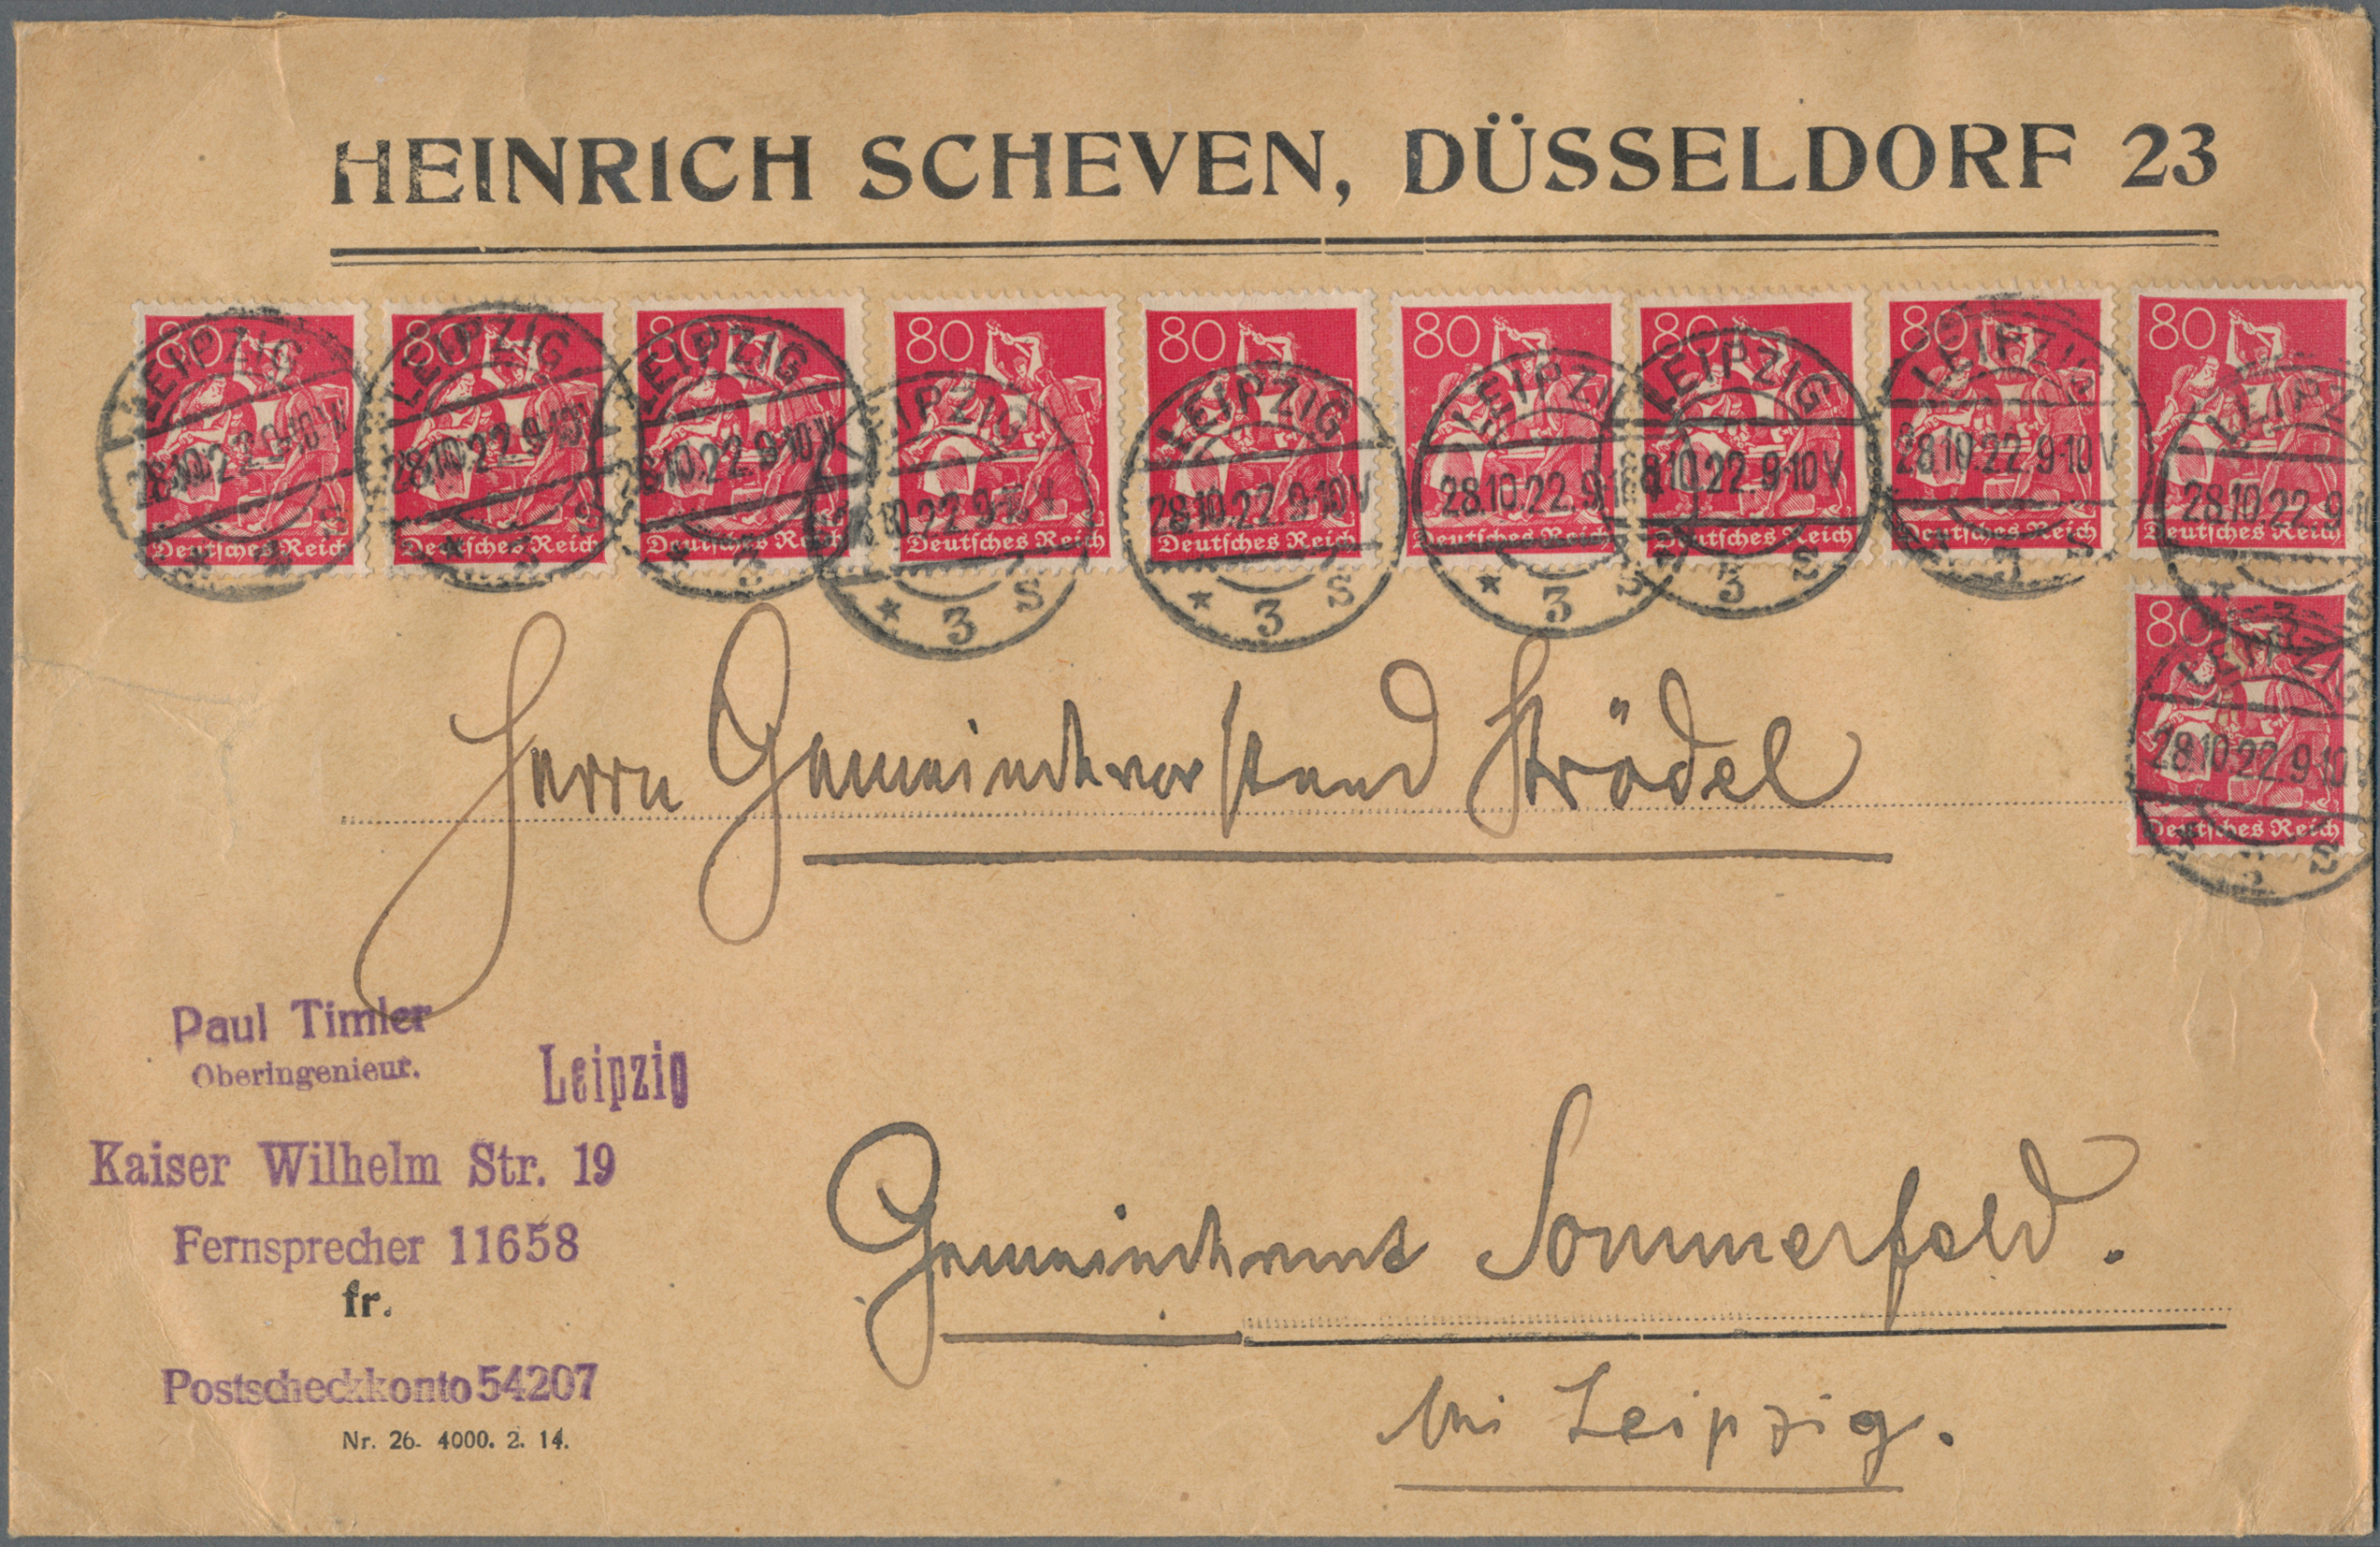 HEINRICH SCHEVEN, DÜSSELDORF 23
80 80 80 80 80 80 80 80 80
LEIPZIG LEIPZIG LEIPZIG LEIPZIG LEIPZIG LEIPZIG LEIPZIG LEIPZIG LEIPZIG
28.10.22.9-10V 28.10.22.9-10V 28.10.22.9-10V 28.10.22.9-10V 28.10.22.9-10V 28.10.22.9-10V 28.10.22.9-10V 28.10.22.9-10V 28.10.22.9
Deutsches Reich Deutsches Reich Deutsches Reich Deutsches Reich Deutsches Reich Deutsches Reich Deutsches Reich Deutsches Reich Deutsches Reich
* 3 s * 3 s * 3 s * 3 s * 3 s * 3 s * 3 s * 3 s *
80
LEIPZIG
28.10.22.9-10
Deutsches Reich
* 3 s
Herrn Gemeindevorstand Strödel
Paul Timler
Oberingenieur.
Leipzig
Kaiser Wilhelm Str. 19
Fernsprecher 11658
fr.
Gemeindeamt Sommerfeld.
Postscheckkonto 54207
bei Leipzig.
Nr. 26. 4000. 2. 14.